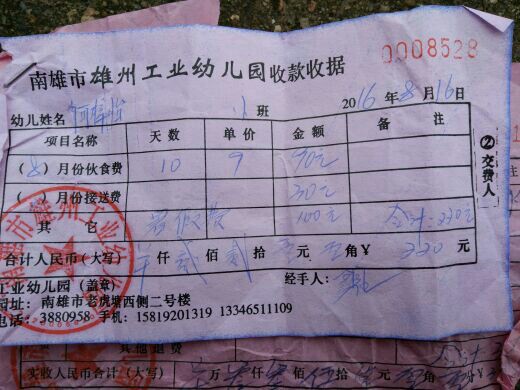 0008528
南雄市雄州工业幼儿园收款收据
幼儿姓名 小班 2016年8月16日
项目名称 天数 单价 金额 备注
(8)月份伙食费 10 9 90元
( )月份接送费 30元
其它 暑假费 100元 合计:220元
合计人民币(大写) 仟贰佰贰拾 元 角¥ 220 元
工业幼儿园(盖章) 经手人:
园址:南雄市老虎塘西侧二号楼
电话:3880958 手机:15819201319 13346511109
②交费人
其他退费
实收人民币合计(大写) 万 仟 佰 拾 元 角